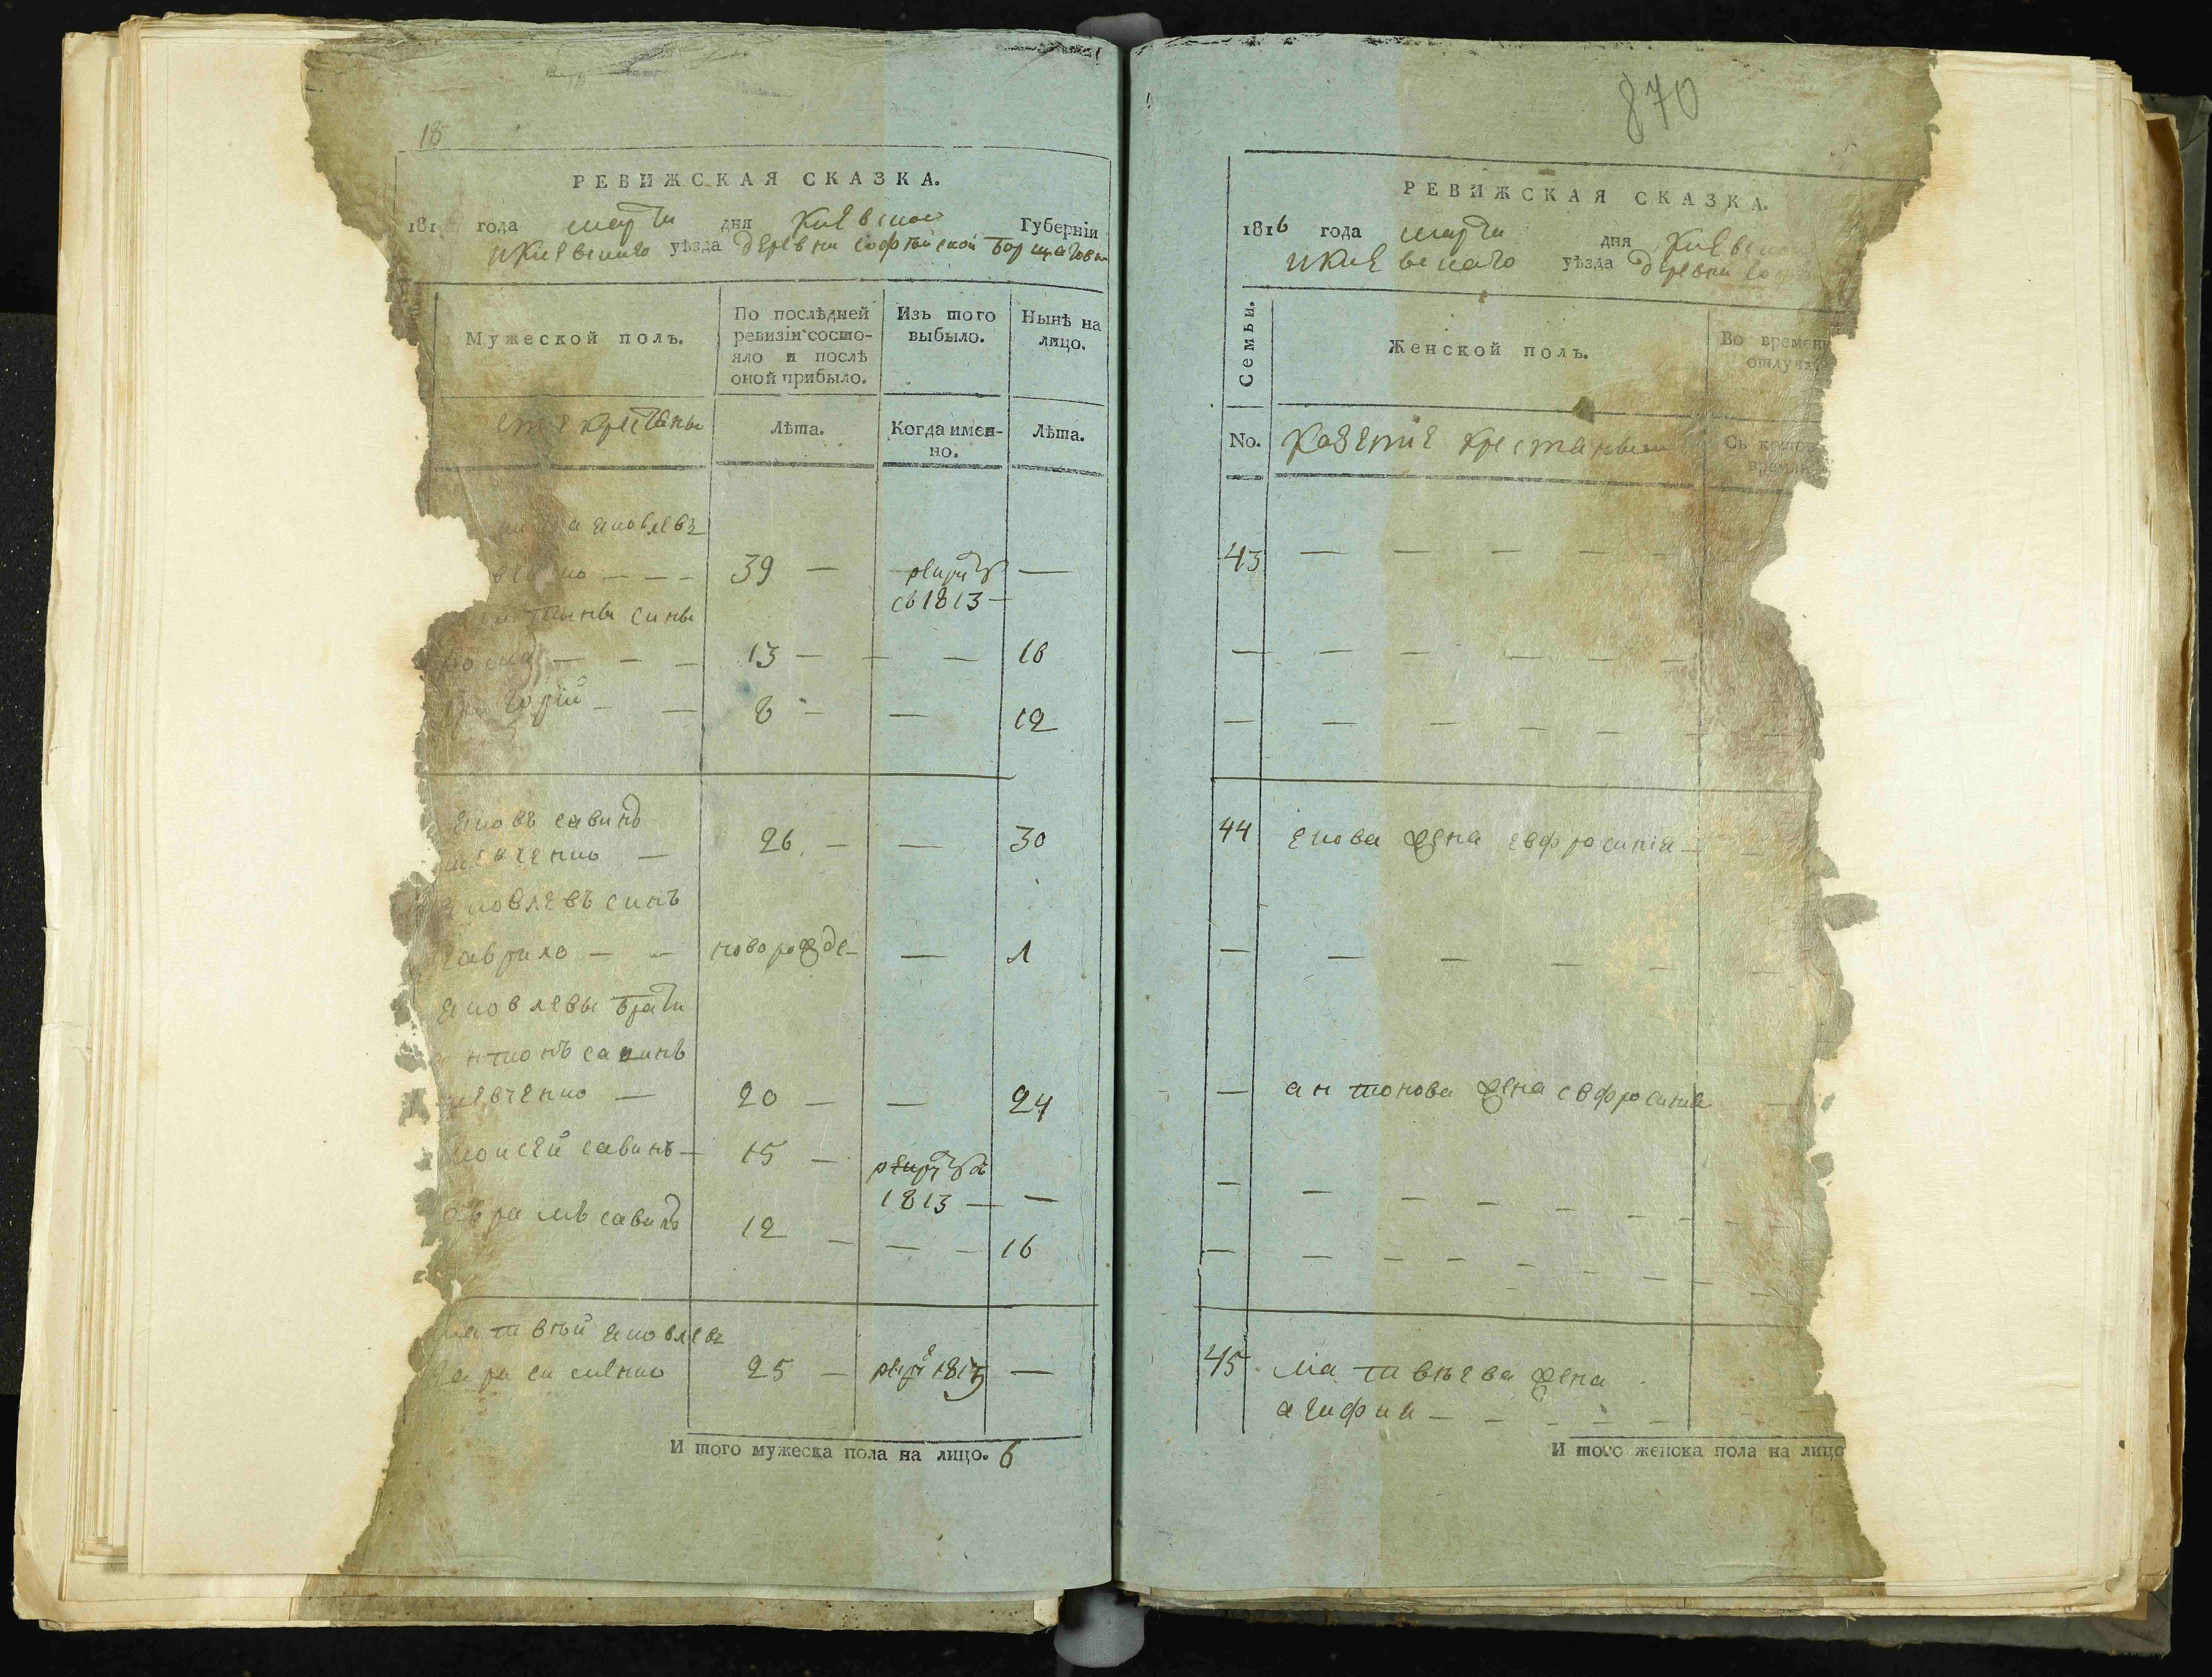 18
РЕВИЖСКАЯ СКАЗКА.
181 года марта дня Киевской Губерніи
и Киевскаго уѣзда деревни Софѣйской Борщаговки
Мужеской полъ.
По послѣдней ревизіи состояло и послѣ оной прибыло.
Изъ того выбыло.
Нынѣ на лицо.
Лѣта.
Когда именно.
Лѣта.
Яковлевъ
39 — рекрутъ —
съ 1813 —
сины
13 — — — 16
8 — — 12
Яковъ Савинъ
Шевченко — 26 — — 30
Яковлевъ синъ
Гаврило — — новорожде — — 1
Яковлевы брати
нтонъ Савинъ
Шевченко — 20 — — 24
Моисей Савинъ — 15 — рекрутъ въ
1813 — —
Абрамъ Савинъ 12 — — — 16
Матвѣй Яковлевъ
Герасименко 25 — рекрут 1813 —
И того мужеска пола на лицо. 6
870
РЕВИЖСКАЯ СКАЗКА.
1816 года марта дня Киевс
и Киевскаго уѣзда деревни Со
Семьи.
Женской полъ.
Во времен
отлучк
No.
Казенние крестяньки
Съ кото
времян
43 — — — —
— — — — — — —
— — — — — — — —
44 Якова жена Евфросиния — —
— — — — — —
— Антонова жена Евфросиния —
— — — — — — — —
— — — — — — — —
45 Матвѣева жена
Агафия — — — — —
И того женска пола на лицо